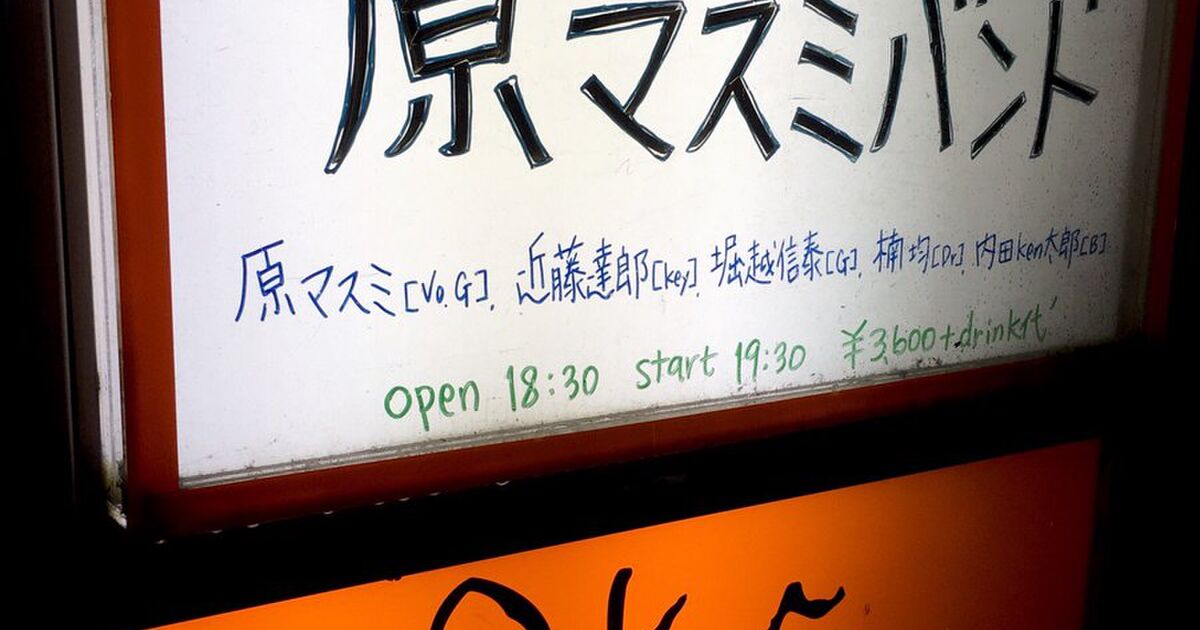 原マスミバンド
原マスミ[Vo.G]. 近藤達郎[key]. 堀越信泰[G]. 楠均[Dr]. 内田ken太郎[B]
open 18:30 start 19:30 ¥3,600+drink代